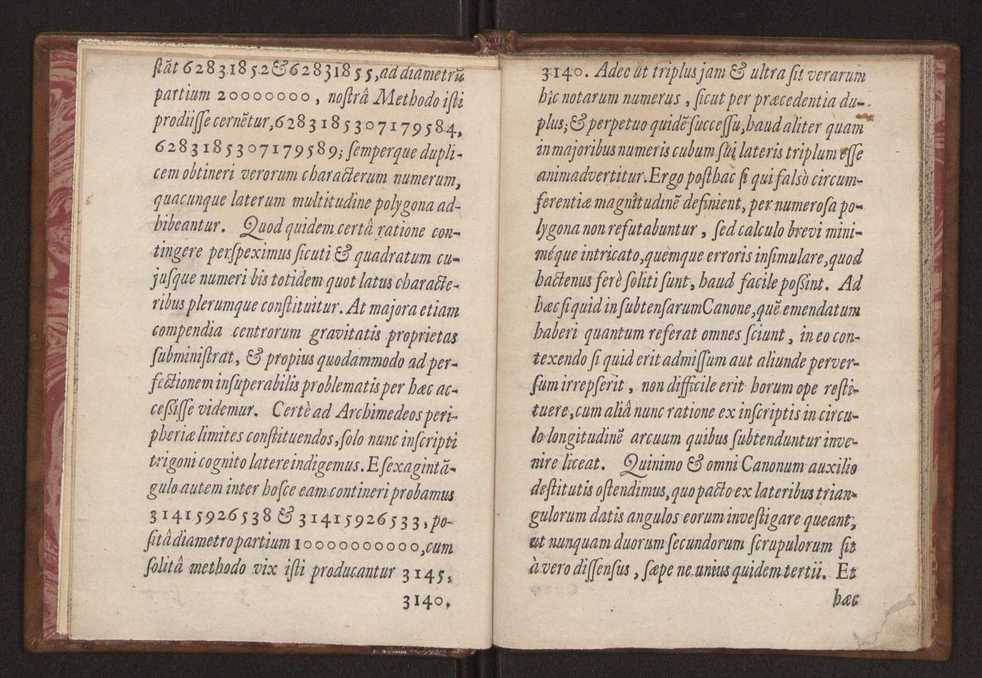 ſtãt 62831852 & 62831855, ad diametrũ
partium 20000000, noſtrâ Methodo iſti
prodiiſſe cernẽtur, 6283185307179584,
6283185307179589; ſemperque dupli-
cem obtineri verorum characterum numerum,
quacunque laterum multitudine polygona ad-
hibeantur. Quod quidem certâ ratione con-
tingere perſpeximus ſicuti & quadratum cu-
juſque numeri bis totidem quot latus characte-
ribus plerumque conſtituitur. At majora etiam
compendia centrorum gravitatis proprietas
ſubminiſtrat, & propius quodammodo ad per-
fectionem inſuperabilis problematis per hæc ac-
ceſſiſſe videmur. Certè ad Archimedeos peri-
pheriæ limites conſtituendos, ſolo nunc inſcripti
trigoni cognito latere indigemus. E ſexagintã-
gulo autem inter hoſce eam contineri probamus
31415926538 & 31415926533, po-
ſitâ diametro partium 10000000000, cum
ſolitâ methodo vix iſti producantur 3145,
3140.
3140. Adeo ut triplus jam & ultra ſit verarum
hîc notarum numerus, ſicut per præcedentia du-
plus; & perpetuo quidẽ ſucceſſu, haud aliter quam
in majoribus numeris cubum ſui lateris triplum eſſe
animadvertitur. Ergo poſthac ſi qui falsò circum-
ferentiæ magnitudinẽ definient, per numeroſa po-
lygona non refutabuntur, ſed calculo brevi mini-
méque intricato, quemque erroris inſimulare, quod
hactenus ferè ſoliti ſunt, haud facile poſſint. Ad
hæc ſi quid in ſubtenſarum Canone, quẽ emendatum
haberi quantum referat omnes ſciunt, in eo con-
texendo ſi quid erit admiſſum aut aliunde perver-
ſum irrepſerit, non difficile erit horum ope reſti-
tuere, cum aliâ nunc ratione ex inſcriptis in circu-
lo longitudinẽ arcuum quibus ſubtenduntur inve-
nire liceat. Quinimo & omni Canonum auxilio
deſtitutis oſtendimus, quo pacto ex lateribus trian-
gulorum datis angulos eorum inveſtigare queant;
ut nunquam duorum ſecundorum ſcrupulorum ſit
à vero diſſenſus, ſæpe ne unius quidem tertii. Et
hæc